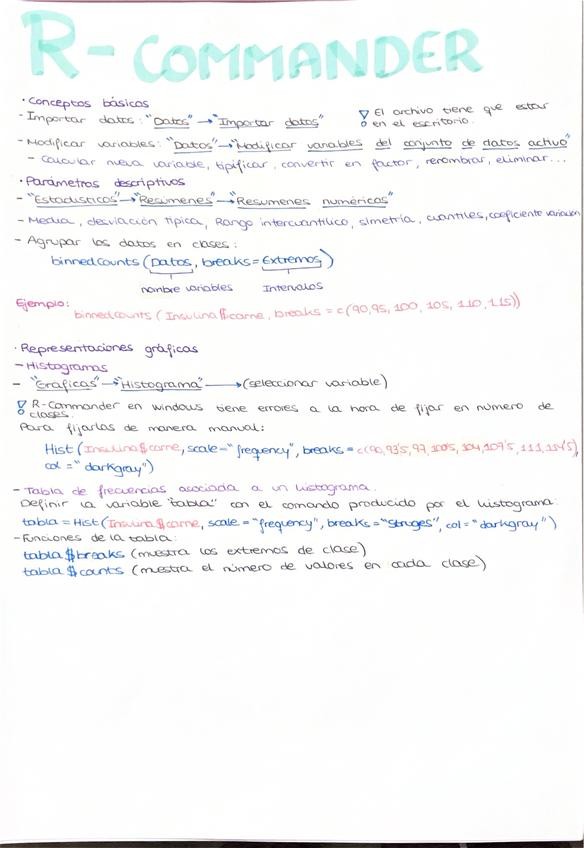 R-COMMANDER
· Conceptos básicos
- Importar datos: "Datos" → "Importar datos"
! El archivo tiene que estar
en el escritorio.
- Modificar variables: "Datos" → "Modificar variables del conjunto de datos activo"
- Calcular nueva variable, tipificar, convertir en factor, renombrar, eliminar...
· Parámetros descriptivos
- "Estadísticos" → "Resúmenes" → "Resúmenes numéricos"
- Media, desviación típica, Rango intercuantílico, simetría, cuantiles, coeficiente variación
- Agrupar los datos en clases:
binnedCounts (Datos, breaks = Extremos)
nombre variables Intervalos
Ejemplo:
binnedcounts (Insulina$carne, breaks = c(90,95, 100, 105, 110, 115))
· Representaciones gráficas
- Histogramas
- "Gráficas" → "Histograma" → (seleccionar variable)
! R-Commander en windows tiene errores a la hora de fijar en número de
clases.
Para fijarlas de manera manual:
Hist (Insulina$carne, scale="frequency", breaks = c(90,93'5,97,100'5, 104,107'5, 111,114'5),
col = "darkgray")
- Tabla de frecuencias asociada a un histograma.
Definir la variable "tabla" con el comando producido por el histograma:
tabla = Hist (Insulina$carne, scale = "frequency", breaks = "Struges", col = "darkgray")
- Funciones de la tabla:
tabla$breaks (muestra los extremos de clase)
tabla$counts (muestra el número de valores en cada clase)